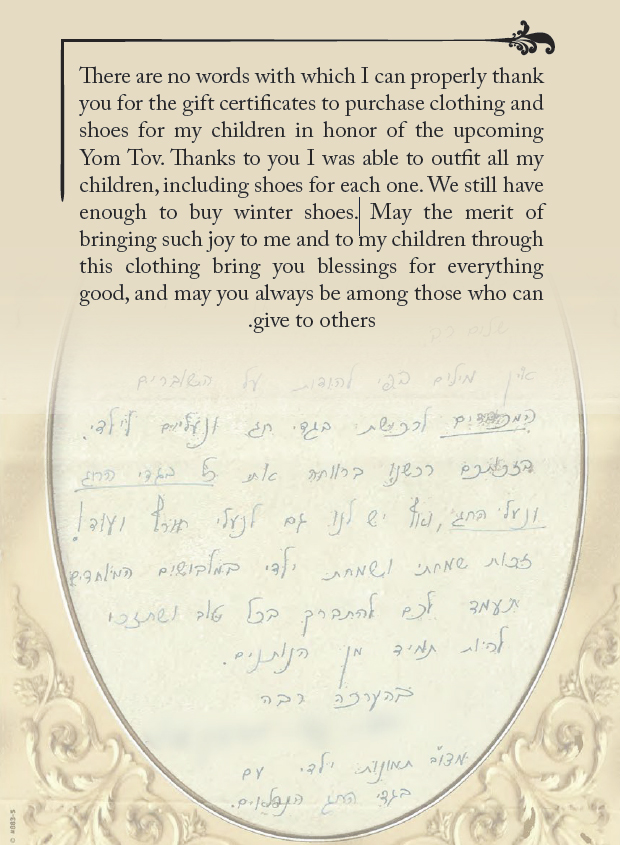 There are no words with which I can properly thank
you for the gift certificates to purchase clothing and
shoes for my children in honor of the upcoming
Yom Tov. Thanks to you I was able to outfit all my
children, including shoes for each one. We still have
enough to buy winter shoes. May the merit of
bringing such joy to me and to my children through
this clothing bring you blessings for everything
good, and may you always be among those who can
.give to others
שלום רב
אין מילים בפי להודות על השוברים
לרכישת בגדי חג ונעליים לילדי.
בזכותכם רכשנו ברווחה את כל בגדי החג
ונעלי החג, ואף יש לנו גם לנעלי חורף ועוד!
זכות שמחתי ושמחת ילדי במלבושים המיוחדים
תעמוד לכם להתברך בכל טוב ושתזכו
להיות תמיד מן הנותנים.
בהערכה רבה
מצו"ב תמונות ילדי עם
בגדי החג הנפלאים.
© #083-5